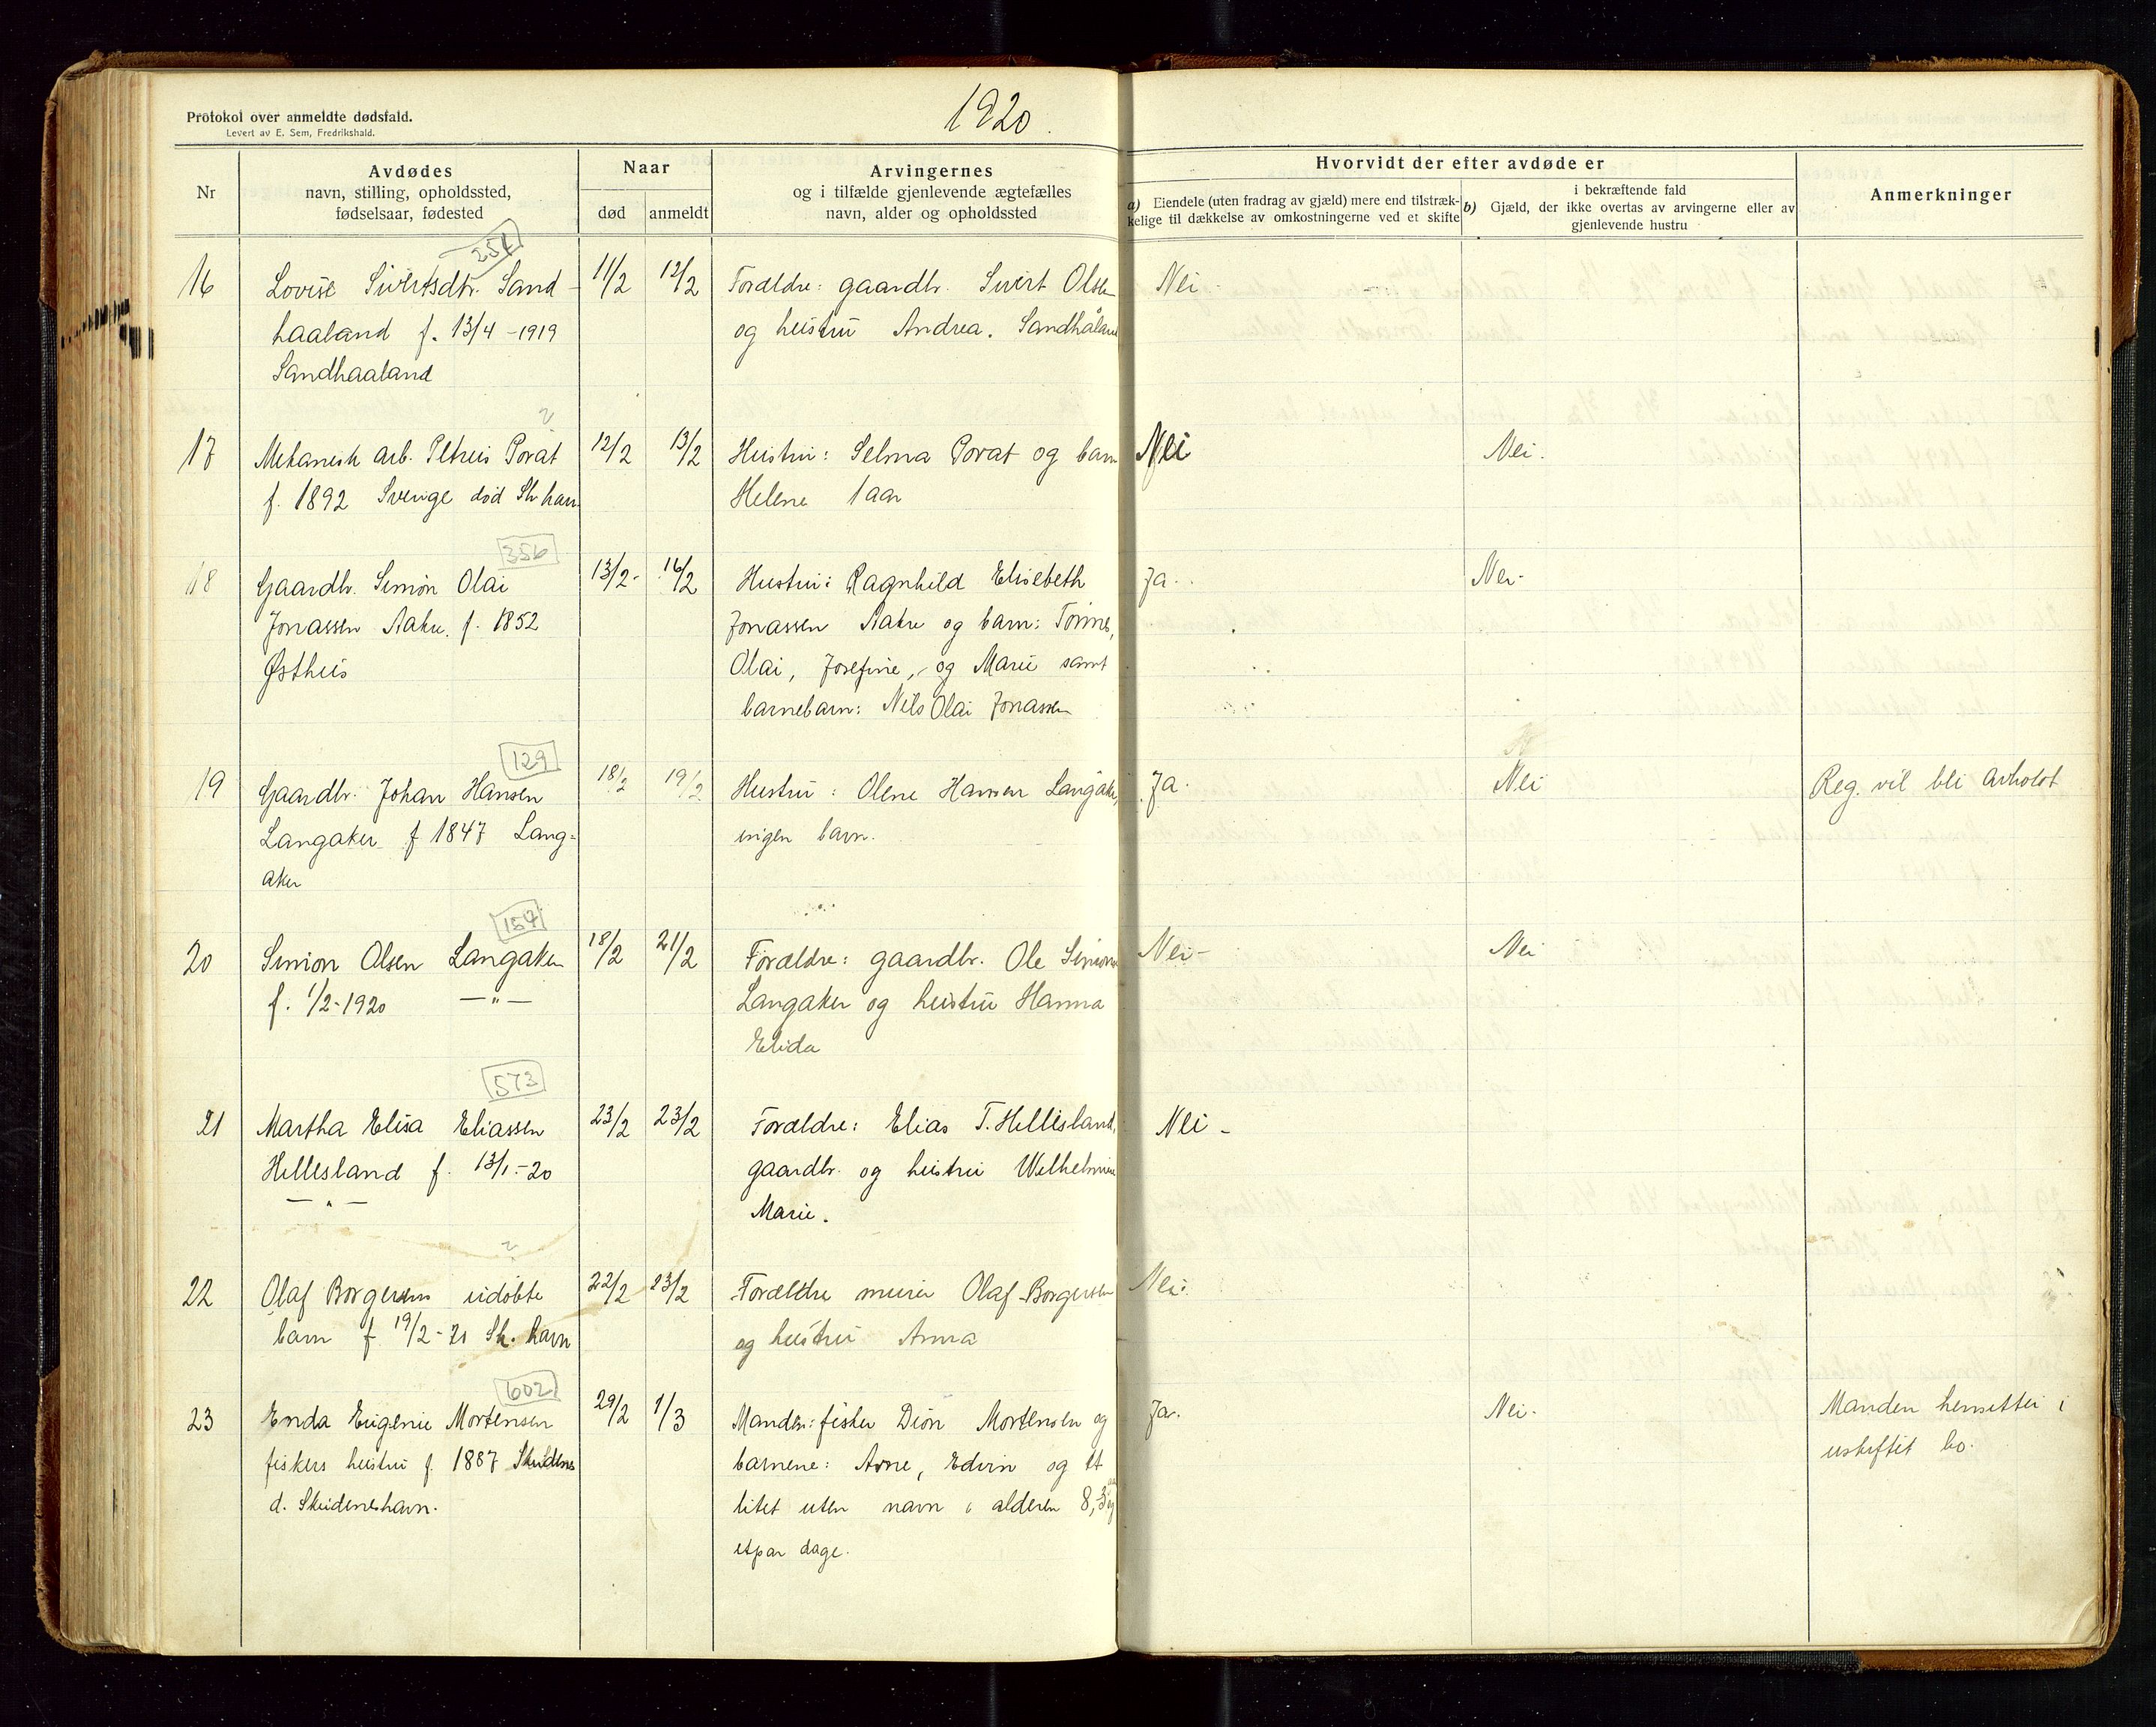 Protokol over anmeldte dødsfald.
Levert av E. Sem, Fredrikshald.
1920
Nr
Avdødes
navn, stilling, opholdssted,
fødselsaar, fødested
Naar
død
anmeldt
Arvingernes
og i tilfælde gjenlevende ægtefælles
navn, alder og opholdssted
Hvorvidt der efter avdøde er
a) Eiendele (uten fradrag av gjæld) mere end tilstræk-
kelige til dækkelse av omkostningerne ved et skifte
b) i bekræftende fald
Gjæld, der ikke overtas av arvingerne eller av
gjenlevende hustru
Anmerkninger
254
16 Lovise Sivertsdtr. Sand- 11/2 12/2 Forældre: gaardbr. Sivert Olsen Nei
haaland f. 13/4-1919 og hustru Andrea. Sandhåland
Sandhaaland
17 Mekanisk arb. Petrus Porat 12/2 13/2 Hustru: Selma Porat og barn Nei Nei.
f. 1892 Sverige død Sk.havn Helene 1 aar
356
18 Gaardbr. Simon Olai 13/2- 16/2 Hustru: Ragnhild Elisebeth Ja. Nei.
Jonassen Aakre. f. 1852 Jonassen Aakre og barn: Tønnes,
Østhus Olai, Josefine, og Marie samt
barnebarn: Nils Olai Jonassen
129
19 Gaardbr. Johan Hansen 18/2 19/2 Hustru: Olene Hansen Langaker, Ja. Nei Reg. vil bli avholdt
Langaker f 1847 Lang- ingen barn.
aker
157
20 Simon Olsen Langaker 18/2 21/2 Forældre: gaardbr. Ole Simonsen Nei- Nei
f. 1/2-1920 —"— Langaker og hustru Hanna
Elida
573
21 Martha Elisa Eliassen 23/2 23/2 Forældre: Elias T. Hellesland, Nei-
Hellesland f. 13/1.-20 gaardbr. og hustru Wilhelmine
—"— Marie.
22 Olaf Borgersens udøbte 22/2 23/2 Forældre murer Olaf Borgersen Nei.
barn f. 19/2-20 Sk.havn og hustru Anna
602
23 Enda Eugenie Mortensen 29/2 1/3 Manden: fisker Dion Mortensen og Ja. Nei. Manden hensitter i
fiskers hustru f. 1887 Skudenes barnene: Arne, Edvin og et uskiftet bo.
d. Skudeneshavn. litet uten navn i alderen 8, 3 og
etpar dage.